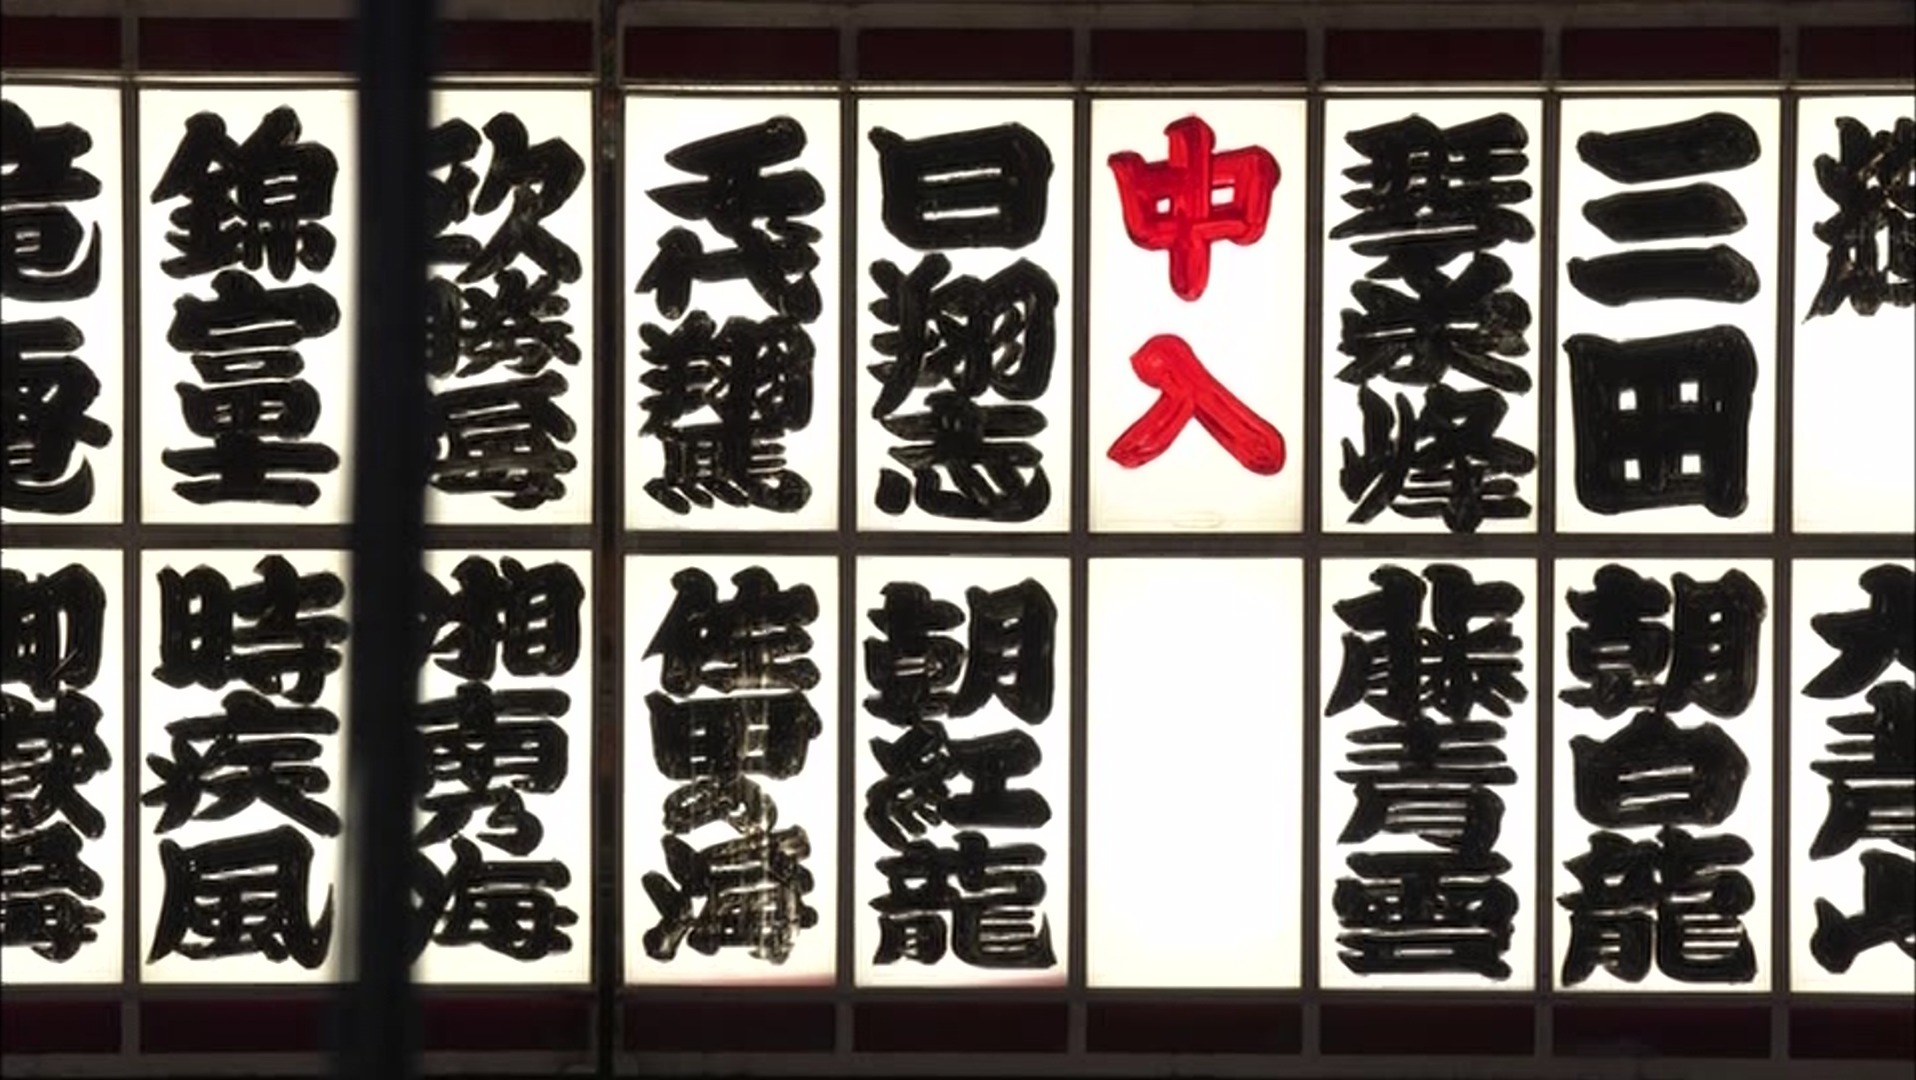 輝
三田
琴栄峰
中入
日翔志
千代翔馬
欧勝馬
錦富士
竜電
大青山
朝白龍
藤青雲
朝紅龍
佐田の海
湘南乃海
時疾風
御嶽海